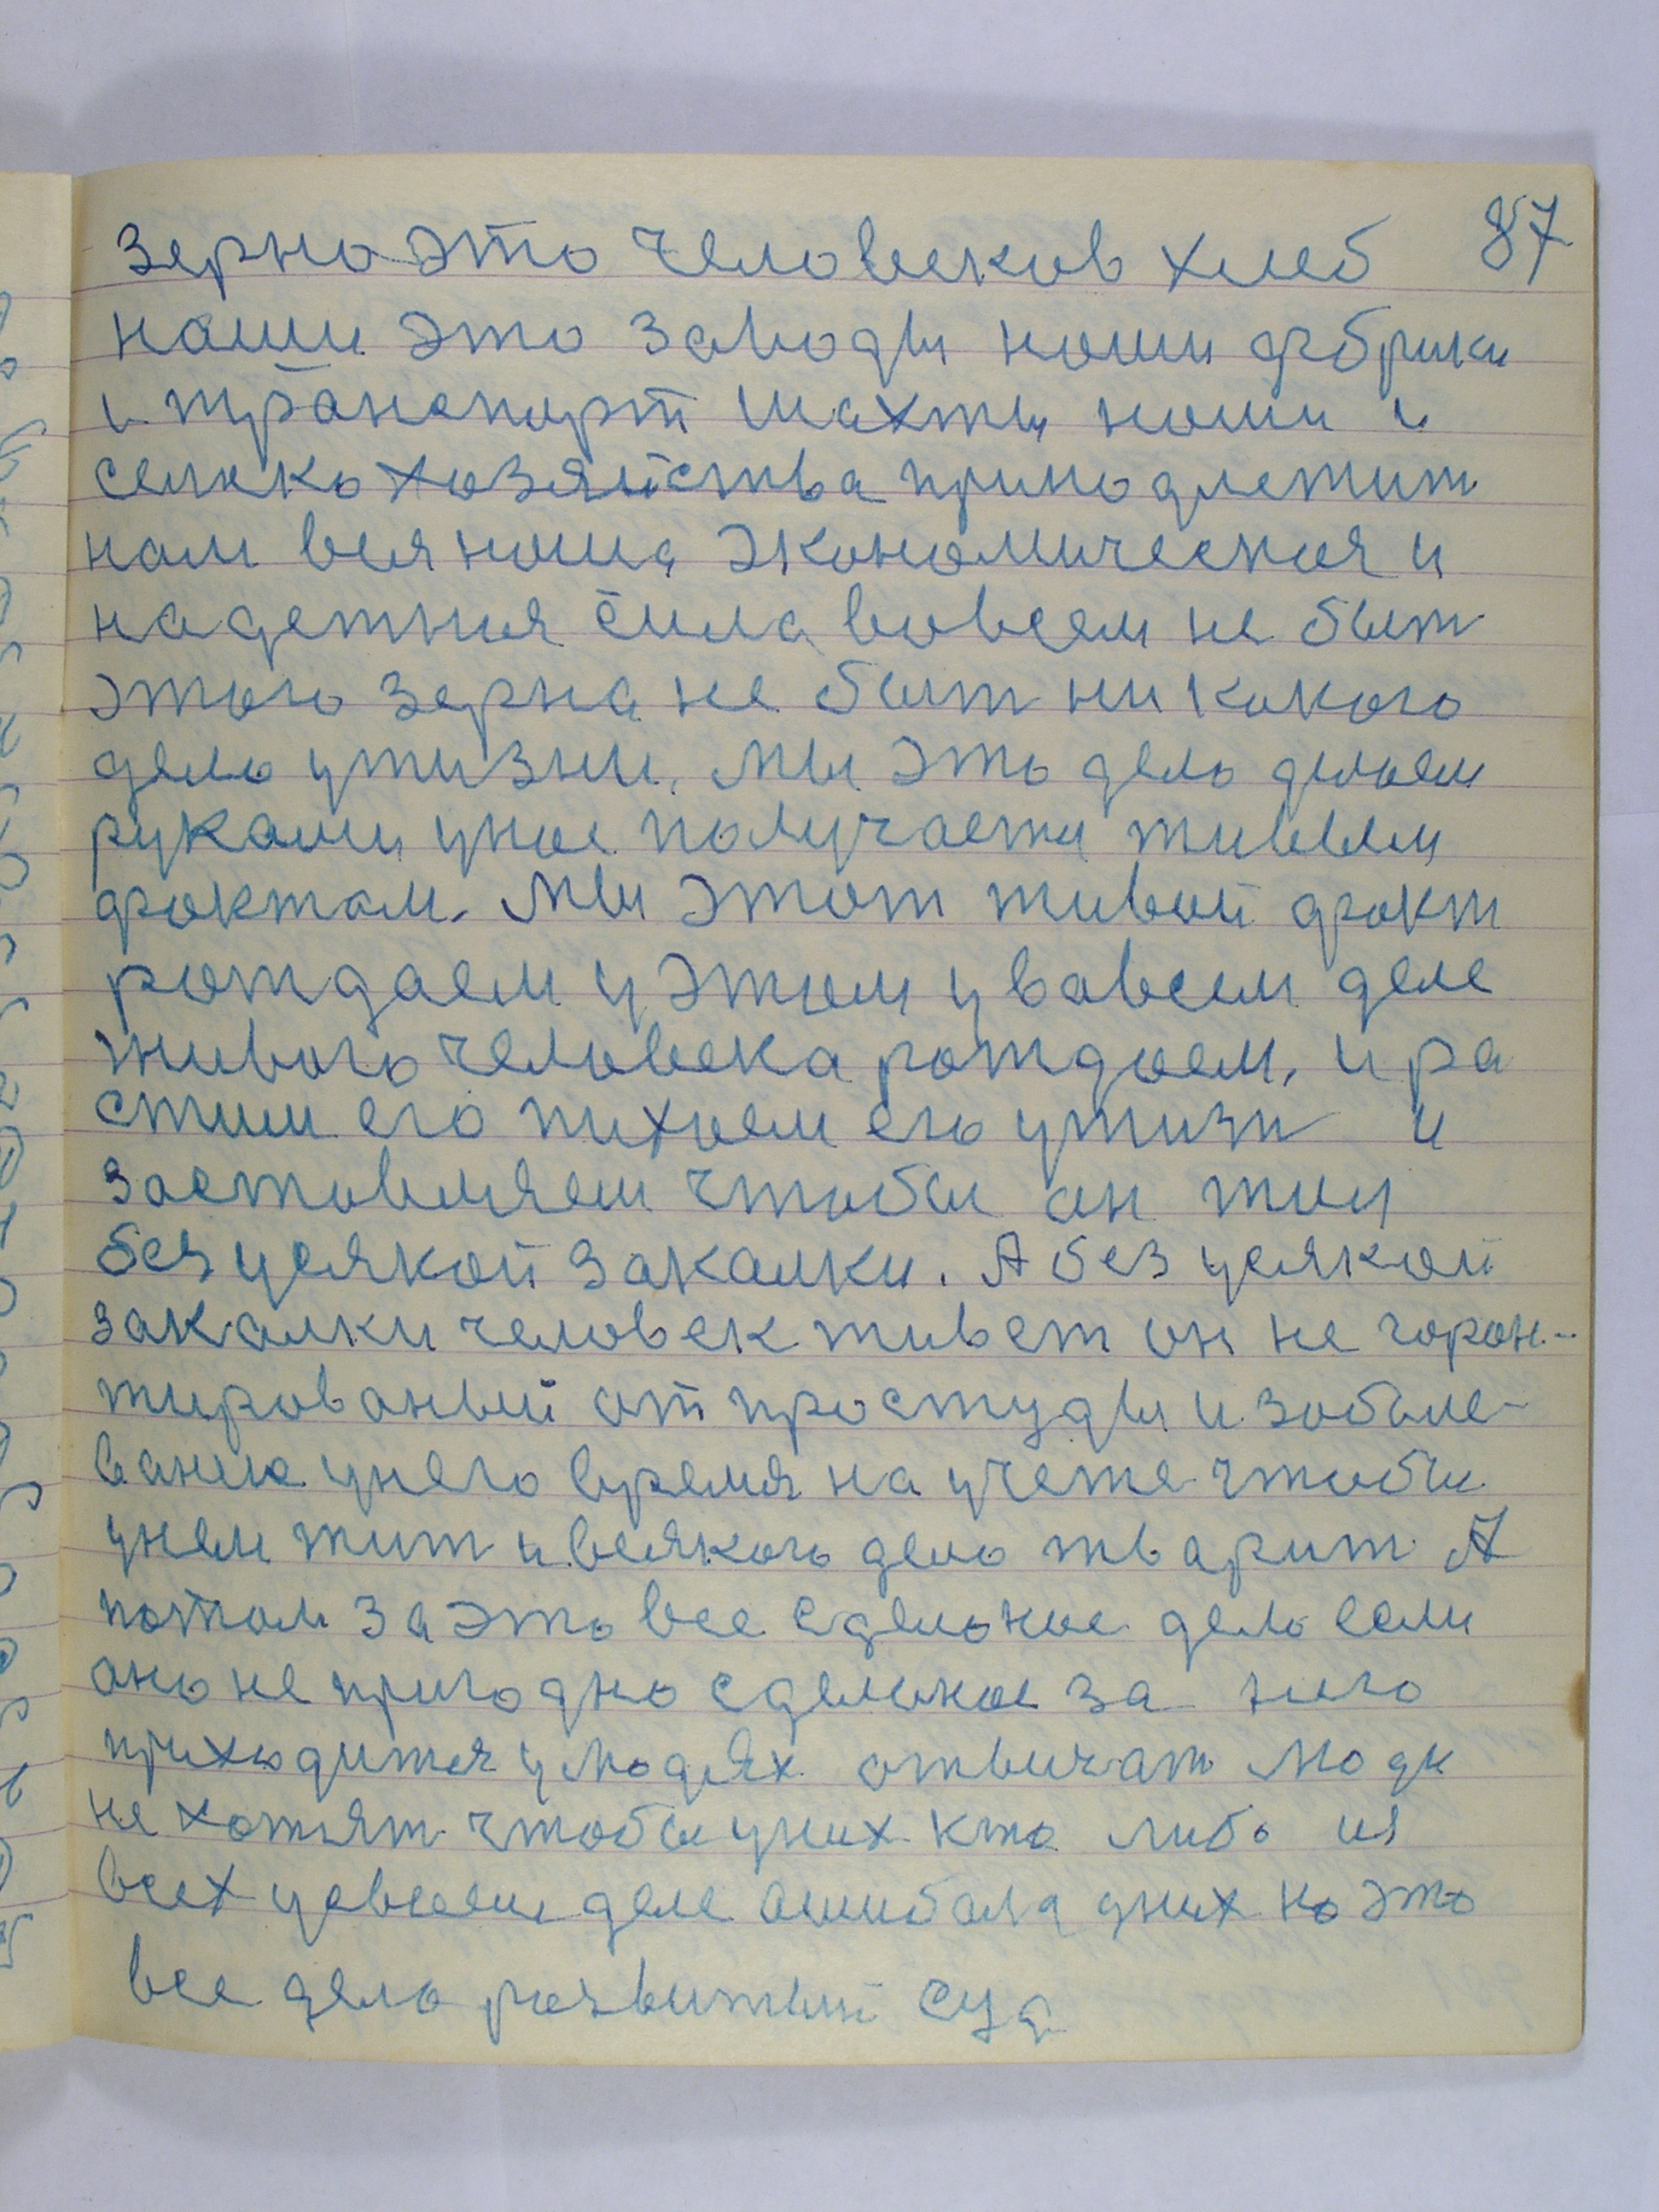 87
Зерно это человеков хлеб
наши это заводы наши фабрики
и транспорт шахты наши и
селско хозяйства приподлетит
нам вся наша экономическая и
надетная сила вовсем не быт
этого зерна не быт ни какого
дело ужизни. Мы это дело делаем
руками унас получаетя живым
фактам. Мы этот живой факт
рождаем у этим у вавсем деле
живого человека рождаем, и ра
стим его пихаем его ужизн и
заставляем чтобы он жил
без усякой закалки. А без усякой
закалки человек живет он не горон-
тированый от простуды и заболе-
вание унего время на учете чтобы
унем жит и всякого дело тварит А
потом за это все сделоное дело если
оно не пригодно сделаное за него
приходитя улюдях отвичат люди
не хотят чтобы уних кто либо из
всех увсеем деле ошибался уних но это
все дело розвитый суд